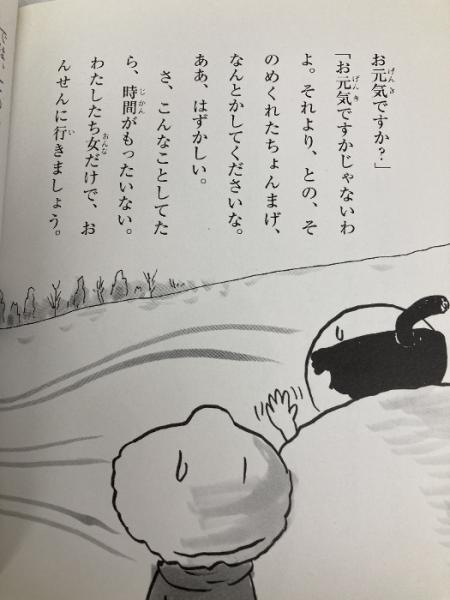 お元気ですか?」
「お元気ですかじゃないわ
よ。それより、との、そ
のめくれたちょんまげ、
なんとかしてくださいな。
ああ、はずかしい。
さ、こんなことしてた
ら、時間がもったいない。
わたしたち女だけで、お
んせんに行きましょう。